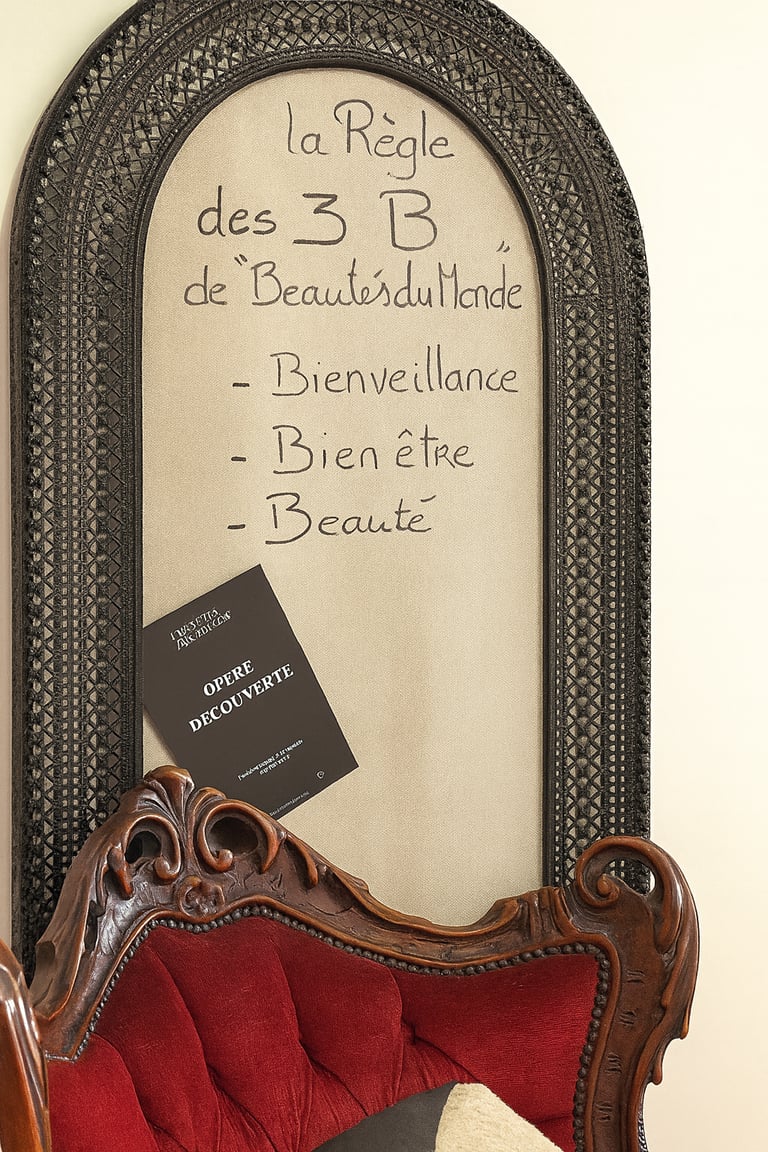 la Règle
des 3 B
de "Beautés du Monde"
- Bienveillance
- Bien être
- Beauté
OPERE
DECOUVERTE